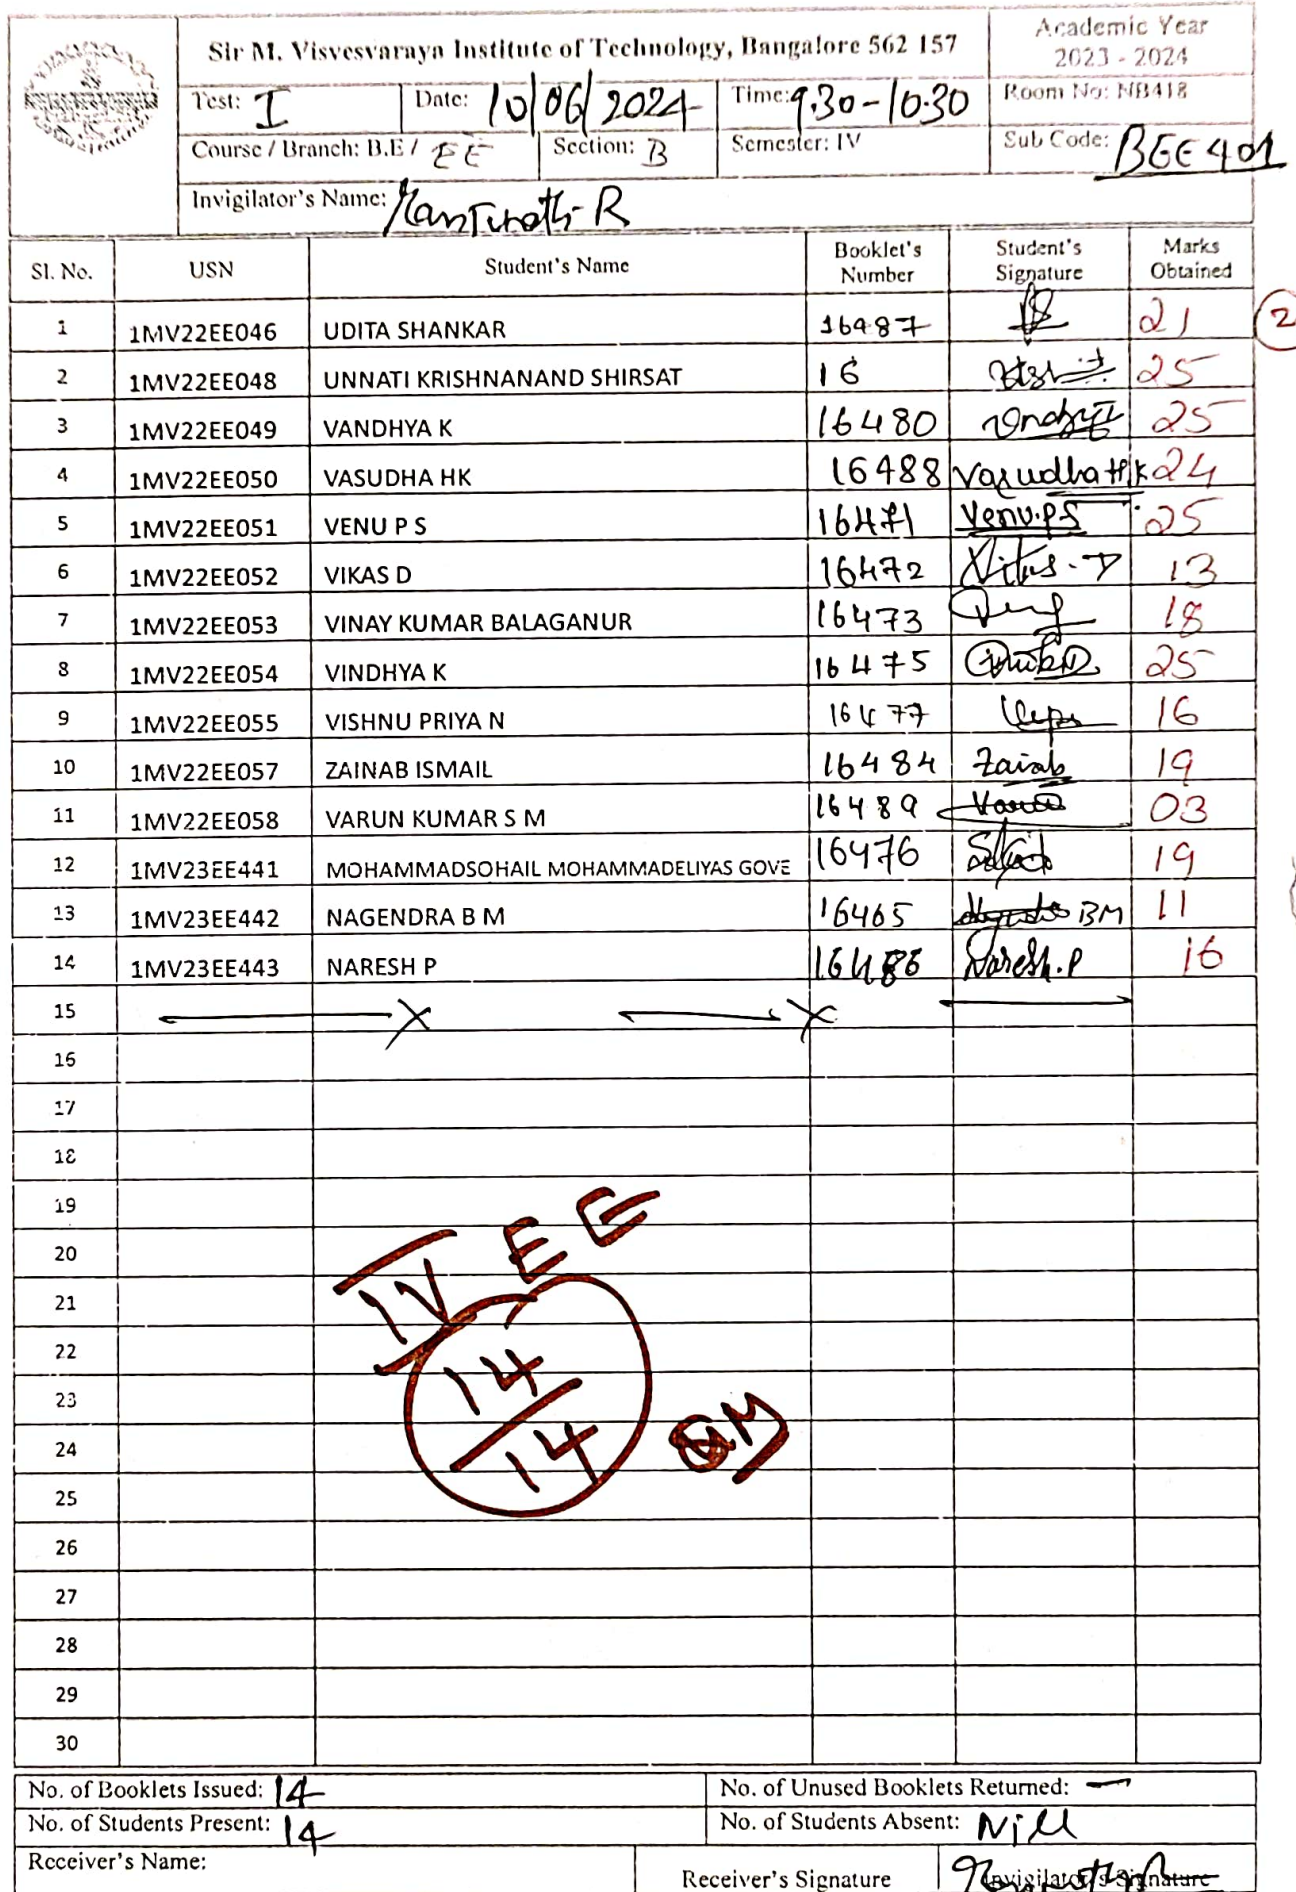 Sir M. Visvesvaraya Institute of Technology, Bangalore 562 157
Academic Year
2023 - 2024
Test: I Date: 10/06/2024 Time: 9.30-10.30 Room No: NB418
Course / Branch: B.E / EE Section: B Semester: IV Sub Code: BEE401
Invigilator's Name: Manjunath R
Sl. No. USN Student's Name Booklet's Number Student's Signature Marks Obtained
1 1MV22EE046 UDITA SHANKAR 16487 21 2
2 1MV22EE048 UNNATI KRISHNANAND SHIRSAT 16 25
3 1MV22EE049 VANDHYA K 16480 25
4 1MV22EE050 VASUDHA HK 16488 Vasudha H K 24
5 1MV22EE051 VENU P S 16471 Venu.P S 25
6 1MV22EE052 VIKAS D 16472 Vikas. D 13
7 1MV22EE053 VINAY KUMAR BALAGANUR 16473 18
8 1MV22EE054 VINDHYA K 16475 25
9 1MV22EE055 VISHNU PRIYA N 16477 16
10 1MV22EE057 ZAINAB ISMAIL 16484 Zainab 19
11 1MV22EE058 VARUN KUMAR S M 16489 Varun 03
12 1MV23EE441 MOHAMMADSOHAIL MOHAMMADELIYAS GOVE 16476 19
13 1MV23EE442 NAGENDRA B M 16465 BM 11
14 1MV23EE443 NARESH P Naresh.P 16
15
16
17
18
19
20
21
22
23
24
25
26
27
28
29
30
IV EE
14
14
No. of Booklets Issued: 14 No. of Unused Booklets Returned: —
No. of Students Present: 14 No. of Students Absent: Nill
Receiver's Name: Receiver's Signature Invigilator's Signature